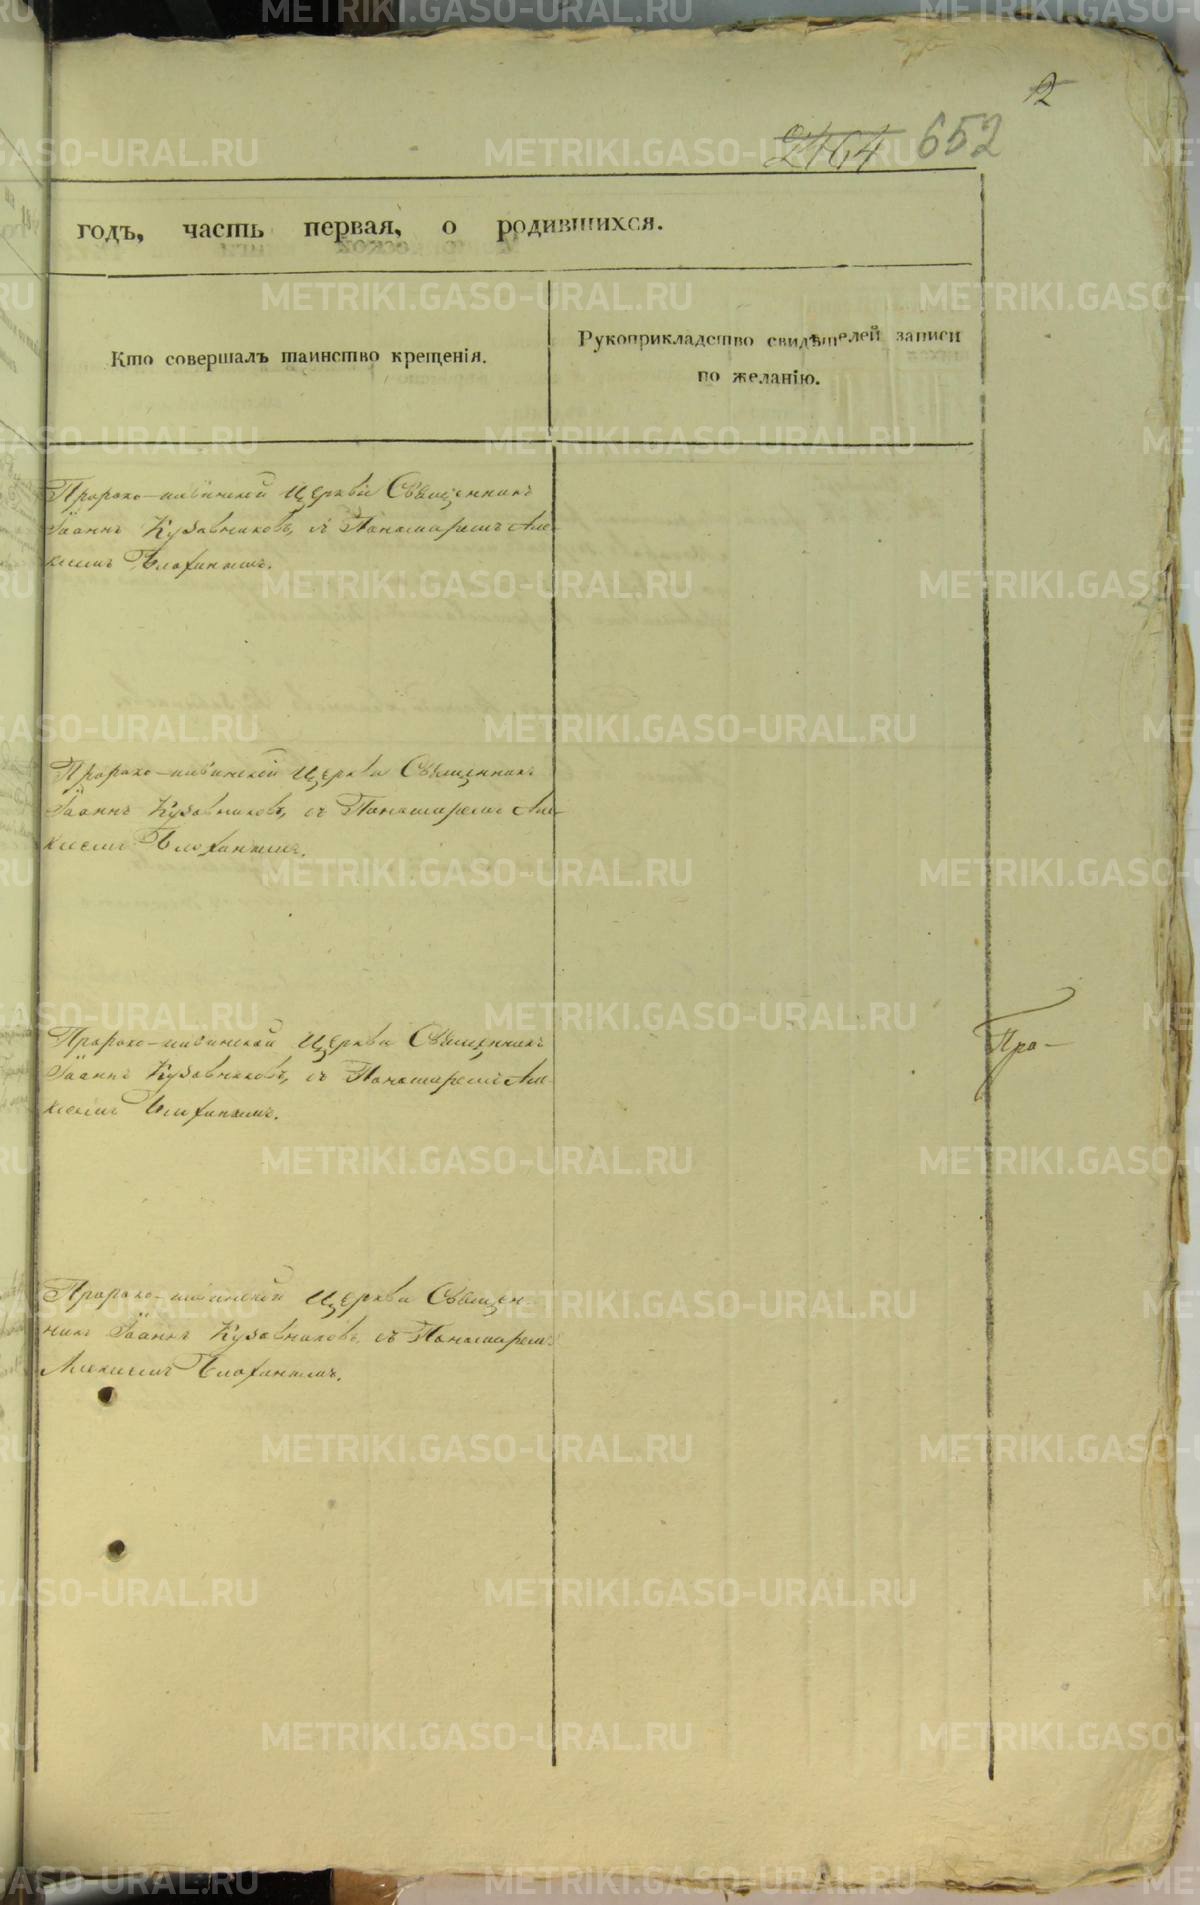 2
2164 652
годъ, часть первая, о родившихся.
Кто совершалъ таинство крещенія.
Рукоприкладство свидѣтелей записи
по желанію.
Пророко-ильинской Церкви Священникъ
Іоаннъ Кузовниковъ, съ Пономаремъ Але-
ксѣемъ
Пророко-ильинской Церкви Священникъ
Іоаннъ Кузовниковъ, съ Пономаремъ Але-
ксѣемъ
Пророко-ильинской Церкви Священникъ
Іоаннъ Кузовниковъ, съ Пономаремъ Але-
ксѣемъ
Про-
Пророко-ильинской Церкви Священ-
никъ Іоаннъ Кузовниковъ, съ Пономаремъ
Алексѣемъ
METRIKI.GASO-URAL.RU